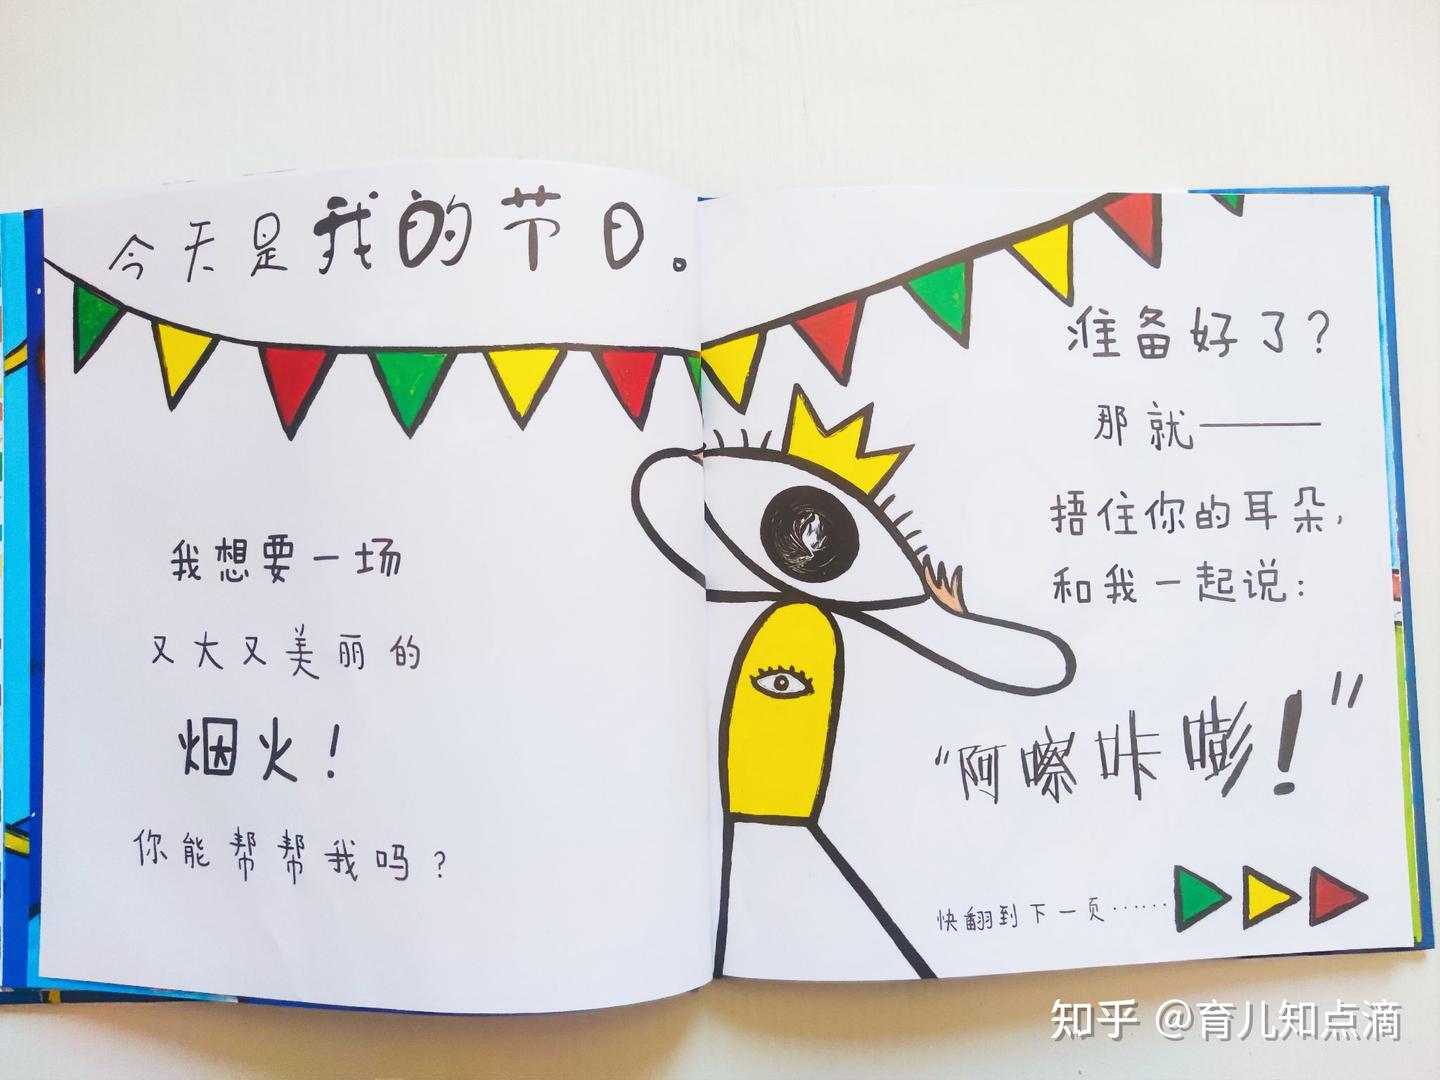 今天是我的节日。
我想要一场
又大又美丽的
烟火！
你能帮帮我吗？
准备好了？
那就——
捂住你的耳朵，
和我一起说：
“阿嚓咔嘭！”
快翻到下一页……
知乎 @育儿知点滴